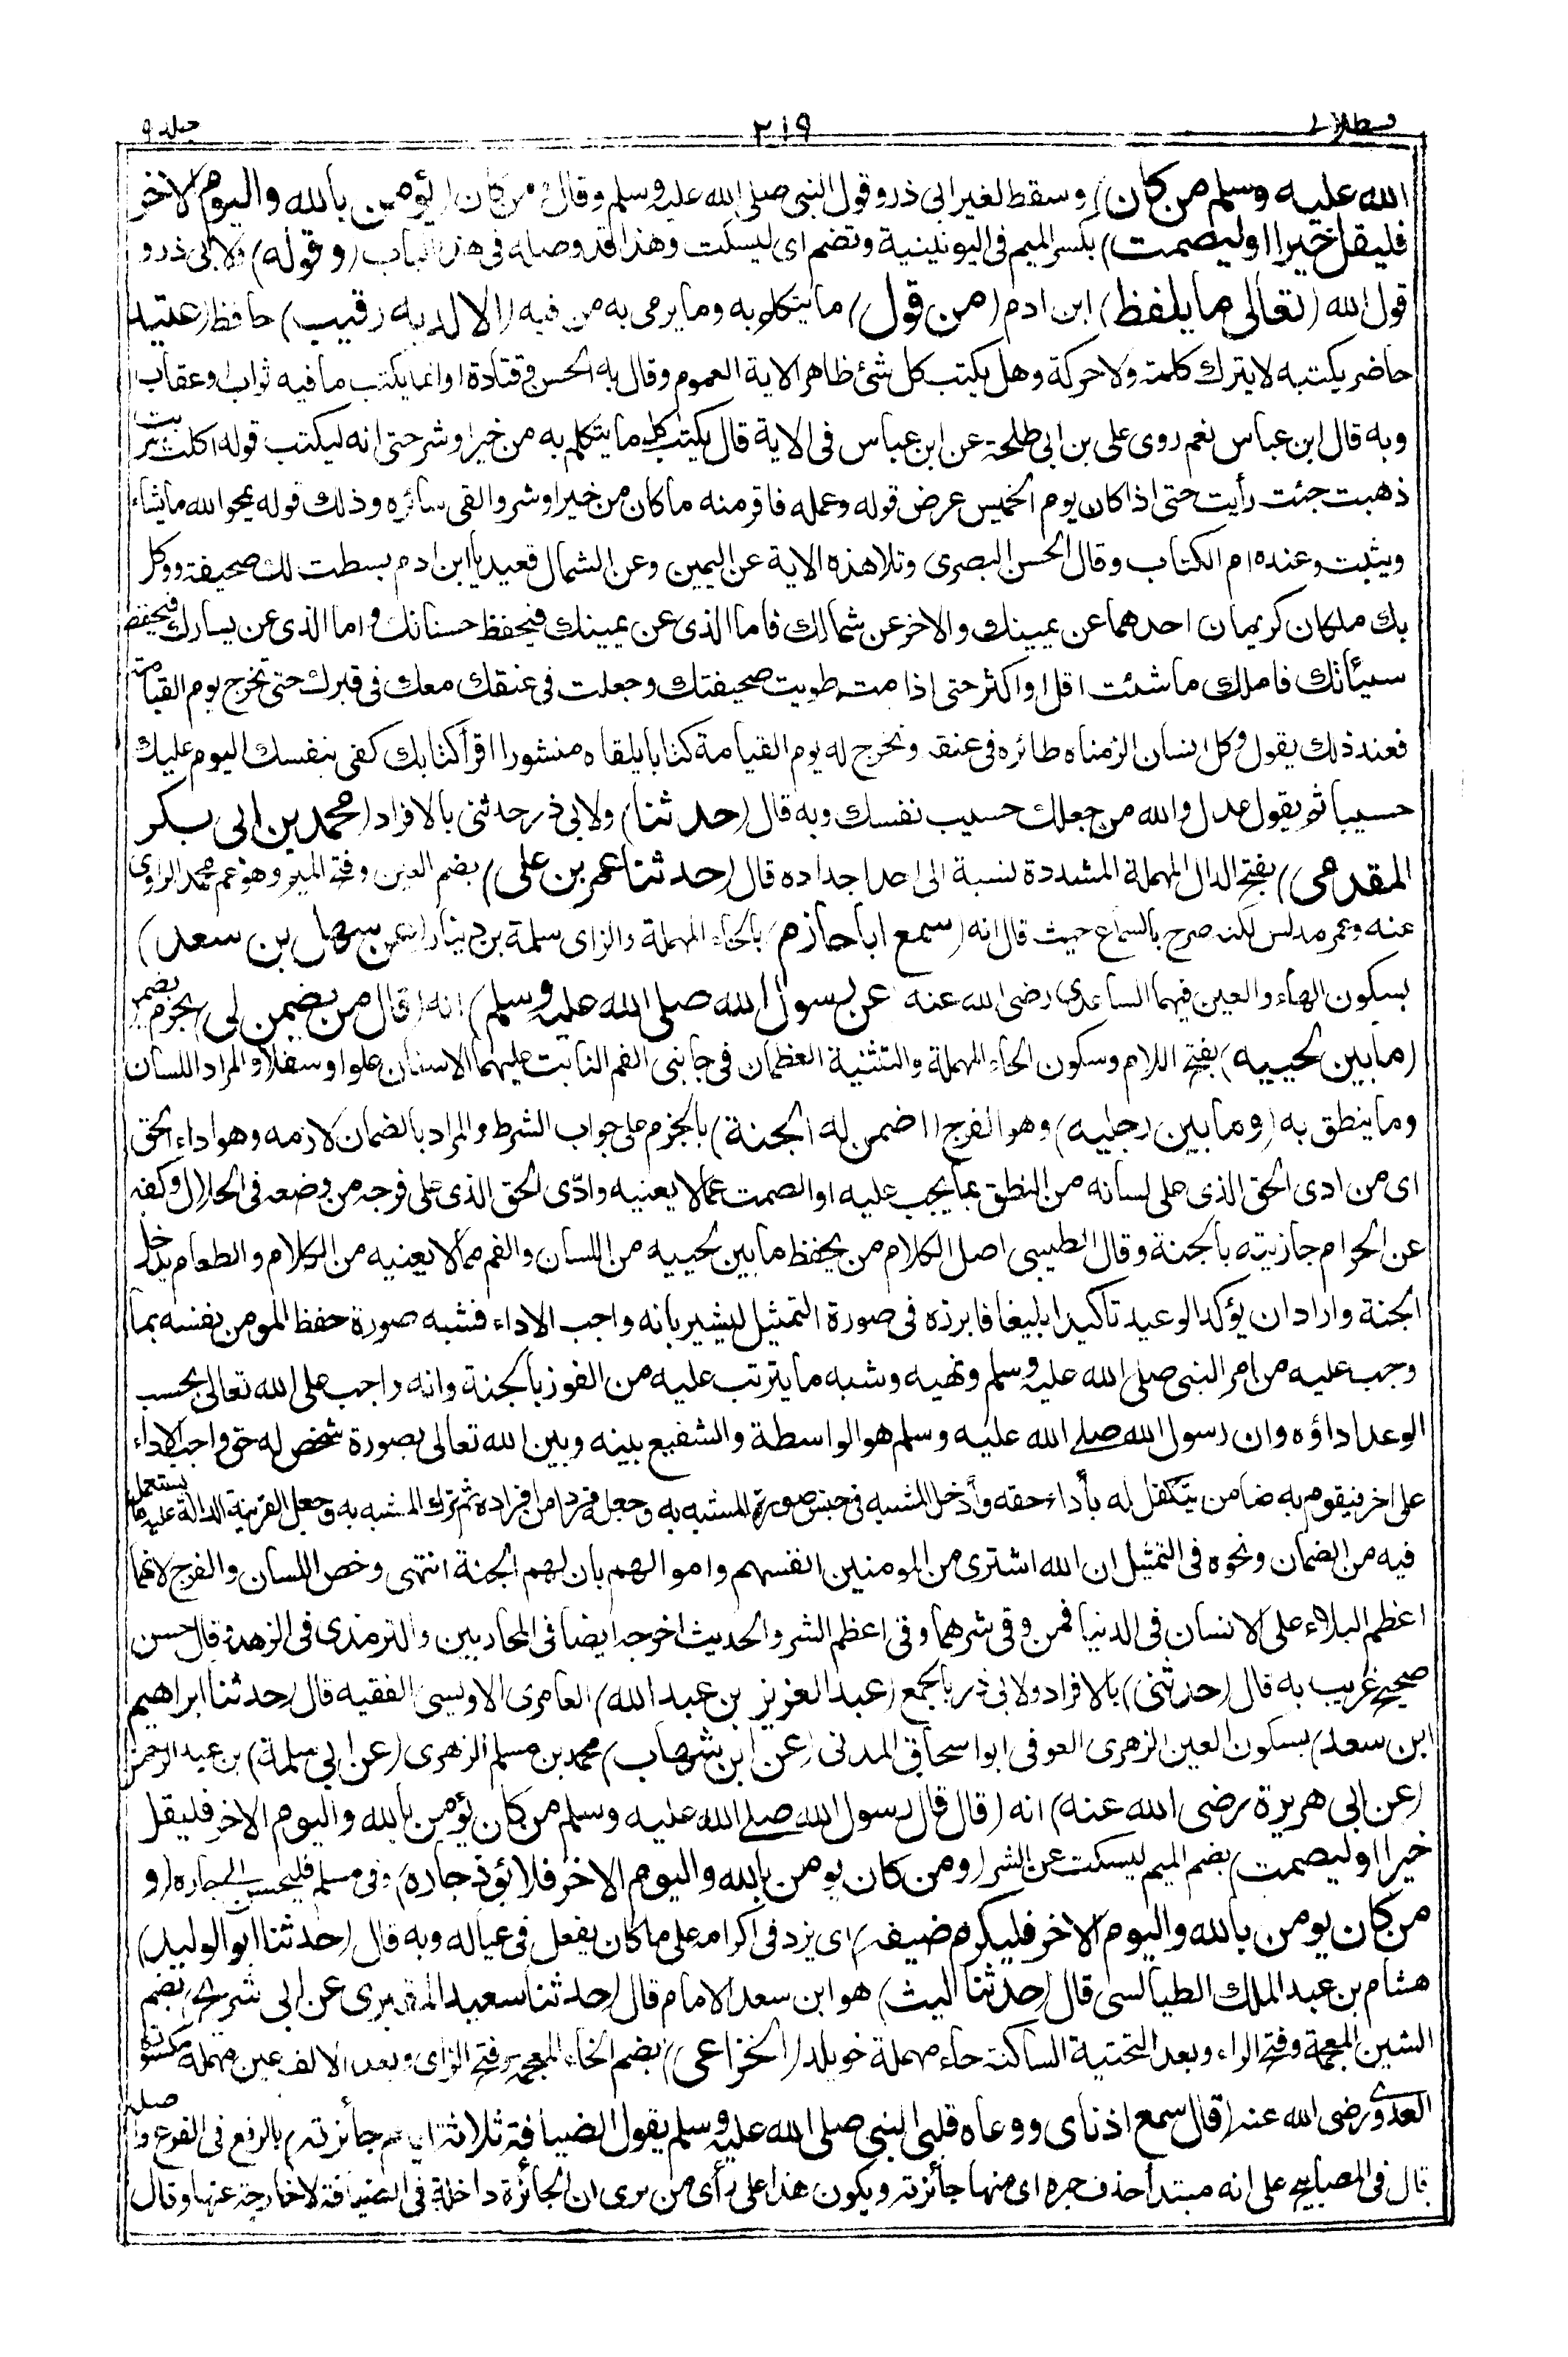 قسطلانى ٢١٩ جلد ٩
الله عليه وسلم من كان) وسقط لغير ابى ذر وقول النبى صلى الله عليه وسلم وقال (من كان يؤمن بالله واليوم الاخر
فليقل خيرا او ليصمت) بكسر الميم فى اليونينية وتضم اى ليسكت وهذا قد وصله فى هذا الباب (وقوله) ولابى ذر و
قول الله (تعالى ما يلفظ) ابن ادم (من قول) ما يتكلم به وما يرمى به من فيه (الا لديه رقيب) حافظ (عتيد)
حاضر يكتبه لا يترك كلمة ولا حركة وهل يكتب كل شئ ظاهر الاية العموم وقال به الحسن وقتادة او انما يكتب ما فيه ثواب او عقاب
وبه قال ابن عباس نعم روى على بن ابى طلحة عن ابن عباس فى الاية قال يكتب كل ما يتكلم به من خير او شر حتى انه ليكتب قوله اكلت شربت
ذهبت جئت رأيت حتى اذا كان يوم الخميس عرض قوله وعمله فاقر منه ما كان من خير او شر والقى سائره وذلك قوله يمحو الله ما يشاء
ويثبت وعنده ام الكتاب وقال الحسن البصرى وتلا هذه الاية عن اليمين وعن الشمال قعيد يا ابن ادم بسطت لك صحيفة ووكل
بك ملكان كريمان احدهما عن يمينك والاخر عن شمالك فاما الذى عن يمينك فيحفظ حسناتك واما الذى عن يسارك فيحفظ
سيئاتك فاملك ما شئت اقل او اكثر حتى اذا مت طويت صحيفتك وجعلت فى عنقك معك فى قبرك حتى تخرج يوم القيامة
فعند ذلك يقول وكل انسان الزمناه طائره فى عنقه ونخرج له يوم القيامة كتابا يلقاه منشورا اقرأ كتابك كفى بنفسك اليوم عليك
حسيبا ثم يقول عدل والله من جعلك حسيب نفسك وبه قال (حدثنا) ولابى ذر حدثنى بالافراد (محمد بن ابى بكر
المقدمى) بفتح الدال المهملة المشددة نسبة الى احد اجداده قال (حدثنا عمر بن على) بضم العين وفتح الميم وهو عم محمد الراوى
عنه وعمر مدلس لكنه صرح بالسماع حيث قال انه (سمع ابا حازم) بالحاء المهملة والزاى سلمة بن دينار (عن سهل بن سعد)
بسكون الهاء والعين فيهما الساعدى رضى الله عنه (عن رسول الله صلى الله عليه وسلم) انه (قال من يضمن لى) بجزم يضمن
(ما بين لحييه) بفتح اللام وسكون الحاء المهملة والتثنية العظمان فى جانبى الفم النابت عليهما الاسنان علوا وسفلا والمراد اللسان
وما ينطق به (وما بين رجليه) وهو الفرج (اضمن له الجنة) بالجزم على جواب الشرط والمراد بالضمان لازمه وهو اداء الحق
اى من ادى الحق الذى على لسانه من النطق بما يجب عليه او الصمت عما لا يعنيه وادّى الحق الذى على فرجه من وضعه فى الحلال وكفه
عن الحرام جازيته بالجنة وقال الطيبى اصل الكلام من يحفظ ما بين لحييه من اللسان والفم مما لا يعنيه من الكلام والطعام يدخل
الجنة واراد ان يؤكد الوعيد تاكيدا بليغا فابرزه فى صورة التمثيل ليشير بانه واجب الاداء فشبه صورة حفظ المومن نفسه بما
وجب عليه من امر النبى صلى الله عليه وسلم ونهيه وشبه ما يترتب عليه من الفوز بالجنة وانه واجب على الله تعالى بحسب
الوعد اداؤه وان رسول الله صلى الله عليه وسلم هو الواسطة والشفيع بينه وبين الله تعالى بصورة شخص له حق واجب الاداء
على اخر فيقوم به ضامن يتكفل له بأداء حقه وأدخل المشبه فى جنس صورة المشبه به وجعله فردا من افراده ثم ترك المشبه به وجعل القرينة الدالة عليه ما يستعمل
فيه من الضمان ونحوه فى التمثيل ان الله اشترى من المومنين انفسهم واموالهم بان لهم الجنة انتهى وخص اللسان والفرج لانهما
اعظم البلاء على الانسان فى الدنيا فمن وقى شرهما وقى اعظم الشر والحديث اخرجه ايضا فى المحاربين والترمذى فى الزهد وقال حسن
صحيح غريب به قال (حدثنى) بالافراد ولابى ذر بالجمع (عبد العزيز بن عبد الله) العامرى الاويسى الفقيه قال (حدثنا ابراهيم
ابن سعد) بسكون العين الزهرى العوفى ابو اسحاق المدنى (عن ابن شهاب) محمد بن مسلم الزهرى (عن ابى سلمة) بن عبد الرحمن
(عن ابى هريرة رضى الله عنه) انه (قال قال رسول الله صلى الله عليه وسلم من كان يؤمن بالله واليوم الاخر فليقل
خيرا او ليصمت) بضم الميم ليسكت عن الشر (ومن كان يومن بالله واليوم الاخر فلا يؤذ جاره) وفى مسلم فليحسن الى جاره (و
من كان يومن بالله واليوم الاخر فليكرم ضيفه) اى يزد فى اكرامه على ما كان يفعل فى عياله وبه قال (حدثنا ابو الوليد)
هشام بن عبد الملك الطيالسى قال (حدثنا الليث) هو ابن سعد الامام قال (حدثنا سعيد المقبرى عن ابى شريح) بضم
الشين المعجمة وفتح الراء وبعد التحتية الساكنة حاء مهملة خويلد (الخزاعى) بضم الخاء المعجمة وفتح الزاى وبعد الالف عين مهملة مكسورة
العدوى رضى الله عنه (قال سمع اذناى ووعاه قلبى النبى صلى الله عليه وسلم يقول الضيافة ثلاثة ايام جائزته) بالرفع فى الفرع واصله
قال فى المصابيح على انه مبتدأ حذف خبره اى منها جائزته ويكون هذا على رأى من يرى ان الجائزة داخلة فى الضيافة لا خارجة عنها وقال